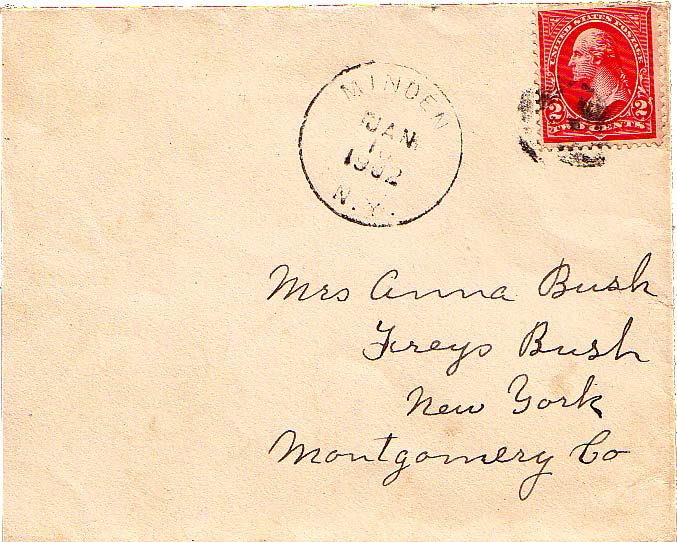 UNITED STATES POSTAGE
2 2
TWO CENTS
MINDEN
JAN
1902
N.Y.
Mrs Anna Bush
Freys Bush
New York
Montgomery Co